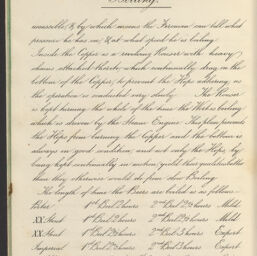 Boiling.
unaccessible, & by which means the Fireman can tell what
pressure he has on, & at what speed he is boiling.
Inside the Copper is a revolving Rouser with heavy
chains attached to it, which continually drag on the
bottom of the Copper, to prevent the Hops adhering, as
the operation is conducted very slowly. The Rouser
is kept turning the whole of the time the Wort is boiling
which is driven by the Steam Engine. This plan prevents
the Hops from burning the Copper and the bottom is
always in good condition, and not only this, the Hops by
being kept continually in motion, yield their qualities better
than they otherwise would do from slow Boiling.
The length of time the Beers are boiled is as follows
Porter 1st Boil 2 hours 2nd Boil 2½ hours Mild.
XX Stout 1st Boil 2 hours 2nd Boil 2½ hours Mild
XX Stout 1st Boil 2 hours 2nd Boil 3 hours Export
Imperial 1st Boil 2 hours 2nd Boil 3 hours Export